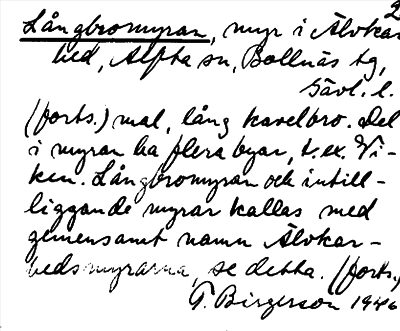 2
Långbromyran, myr i Älvkar-
hed, Alfta sn, Bollnäs tg,
Gävl. l.
(forts.) mal, lång kavelbro. Del
i myran ha flera byar, t.ex. Vi-
ken. Långbromyran och intill-
liggande myrar kallas med
gemensamt namn Älvkar-
hedsmyrarna, se detta. (forts.)
T. Birgerson 1946